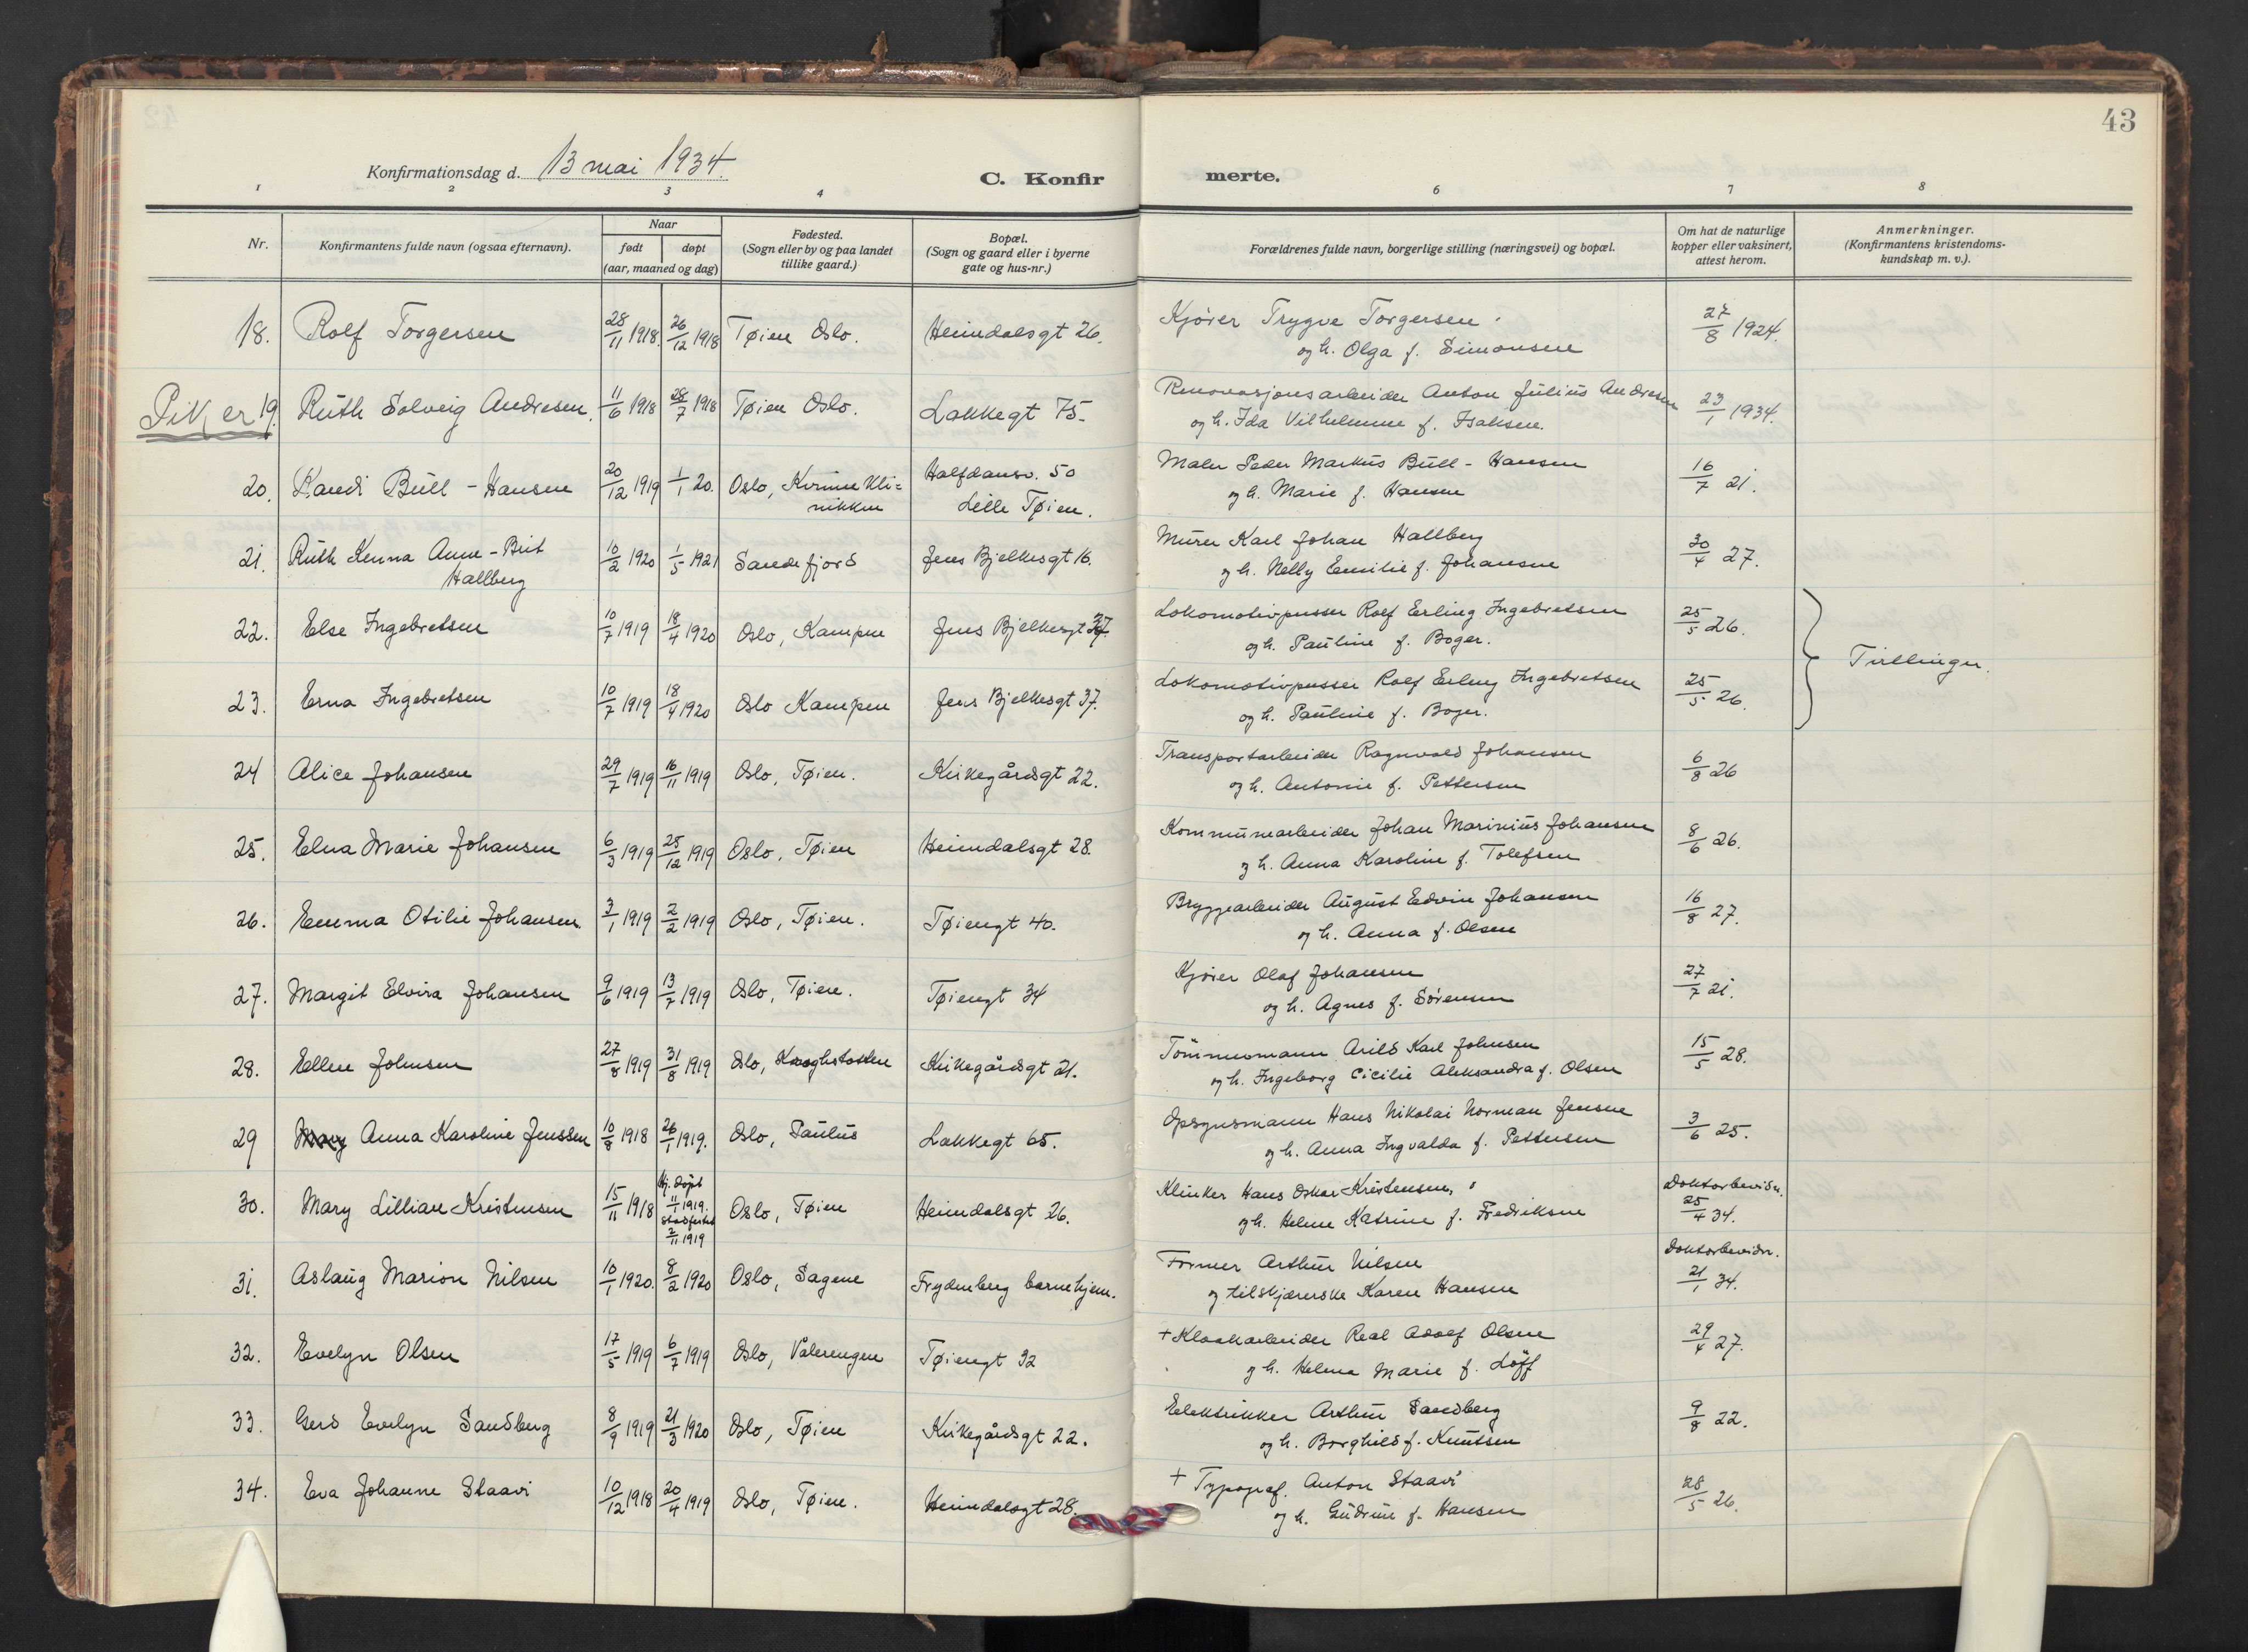 43
Konfirmationsdag d. 13 mai 1934.
C. Konfirmerte.
1 2 3 4 6 7 8
Nr.
Konfirmantens fulde navn (ogsaa efternavn).
Naar
født døpt
(aar, maaned og dag)
Fødested.
(Sogn eller by og paa landet
tillike gaard.)
Bopæl.
(Sogn og gaard eller i byerne
gate og hus-nr.)
Forældrenes fulde navn, borgerlige stilling (næringsvei) og bopæl.
Om hat de naturlige
kopper eller vaksinert,
attest herom.
Anmerkninger.
(Konfirmantens kristendoms-
kundskap m. v.).
18. Rolf Torgersen 28/11 1918. 26/12 1918 Tøien Oslo. Heimdalsgt 26. Kjører Trygve Torgersen 27/8 1924.
og h. Olga f. Simonsen
Piker 19. Ruth Solveig Andresen. 11/6 1918 28/7 1918 Tøien Oslo. Lakkegt 75. Renovasjonsarbeider Anton Julius Andresen 23/1 1934.
og h. Ida Vilhelmine f. Isaksen.
20. Randi Bull-Hansen 20/12 1919 1/1 20. Oslo, Kvinnekli= Halfdansv. 50 Maler Peder Markus Bull-Hansen 16/7 21.
nikken Lille Tøien. og h. Marie f. Hansen
21. Ruth Kenna Anne-Brit 10/2 1920 1/5 1921 Sandefjord Jens Bjelkesgt 16. Murer Karl Johan Hallberg 30/4 27.
Hallberg og h. Nelly Emilie f. Johansen
22. Else Ingebretsen 10/7 1919 18/4 1920 Oslo, Kampen Jens Bjelkesgt 37 Lokomotivpusser Rolf Erling Ingebretsen 25/5 26.
og h. Pauline f. Boger.
Tvillinger.
23. Erna Ingebretsen 10/7 1919 18/4 1920 Oslo Kampen Jens Bjelkesgt 37. Lokomotivpusser Rolf Erling Ingebretsen 25/5 26.
og h. Pauline f. Boger.
24 Alice Johansen 29/7 1919 16/11 1919 Oslo, Tøien. Kirkegårdsgt 22. Transportarbeider Ragnvald Johansen 6/8 26
og h. Antonie f. Pettersen
25. Elna Marie Johansen 6/3 1919 25/12 1919 Oslo, Tøien Heimdalsgt 28. Kommunearbeider Johan Marinius Johansen 8/6 26.
og h. Anna Karoline f. Tolefsen
26. Emma Otilie Johansen. 3/1 1919 2/2 1919 Oslo, Tøien. Tøiengt 40. Bryggearbeider August Edvin Johansen 16/8 27.
og h. Anna f. Olsen
27. Margit Elvira Johansen 9/6 1919 13/7 1919 Oslo, Tøien. Tøiengt 34 Kjører Olaf Johansen 27/7 21.
og h. Agnes f. Sørensen
28. Ellen Johnsen 27/8 1919 31/8 1919 Oslo, Kroghstøtten Kirkegårdsgt 21. Tömmermann Arild Karl Johnsen 15/5 28.
og h. Ingeborg Cicilie Aleksandra f. Olsen
29 Anna Karoline Jenssen 10/8 1918 26/1 1919. Oslo, Paulus Lakkegt 65. Opsynsmann Hans Nikolai Norman Jensen 3/6 25.
og h. Anna Ingvalda f. Pettersen
30. Mary Lillian Kristensen 15/11 1918 Hj. döpt 11/1 1919. stadfestet 2/11 1919 Oslo, Tøien Heimdalsgt 26. Klinker Hans Oskar Kristensen, Doktorbevidn. 25/4 34.
og h. Helene Katrine f. Fredriksen
31. Aslaug Marion Nilsen 10/1 1920. 8/2 1920 Oslo, Sagene Frydenberg barnehjem. Former Arthur Nilsen Doktorbevidn. 21/1 34.
og tilskjærerske Karen Hansen
32. Evelyn Olsen 17/5 1919 6/7 1919 Oslo, Vålerengen Tøiengt 32 + Kloakarbeider Real Adolf Olsen 29/4 27.
og h. Helene Marie f. Löff
33. Gerd Evelyn Sandberg 8/9 1919 21/3 1920 Oslo, Tøien Kirkegårdsgt 22. Elektrikker Arthur Sandberg 9/8 22.
og h. Borghild f. Knutsen
34. Eva Johanne Staavi 10/12 1918 20/4 1919 Oslo, Tøien. Heimdalsgt 28. + Typograf. Anton Staavi 28/5 26.
og h. Gudrun f. Hansen